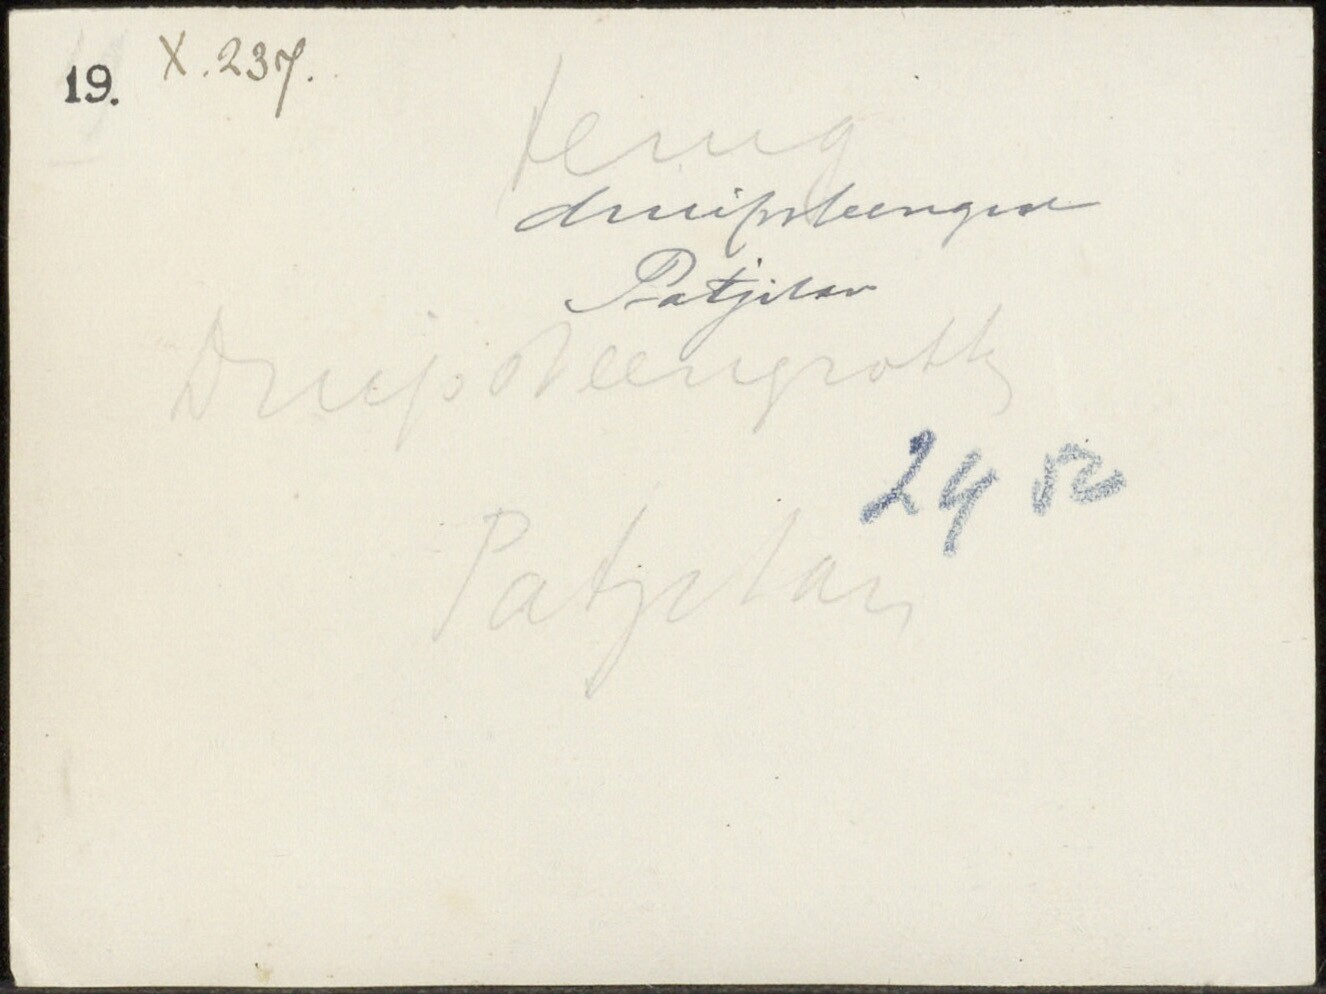 19. X.237.
terug
druipsteengrot
Patjitan
Druipsteengrotte
Patjitan